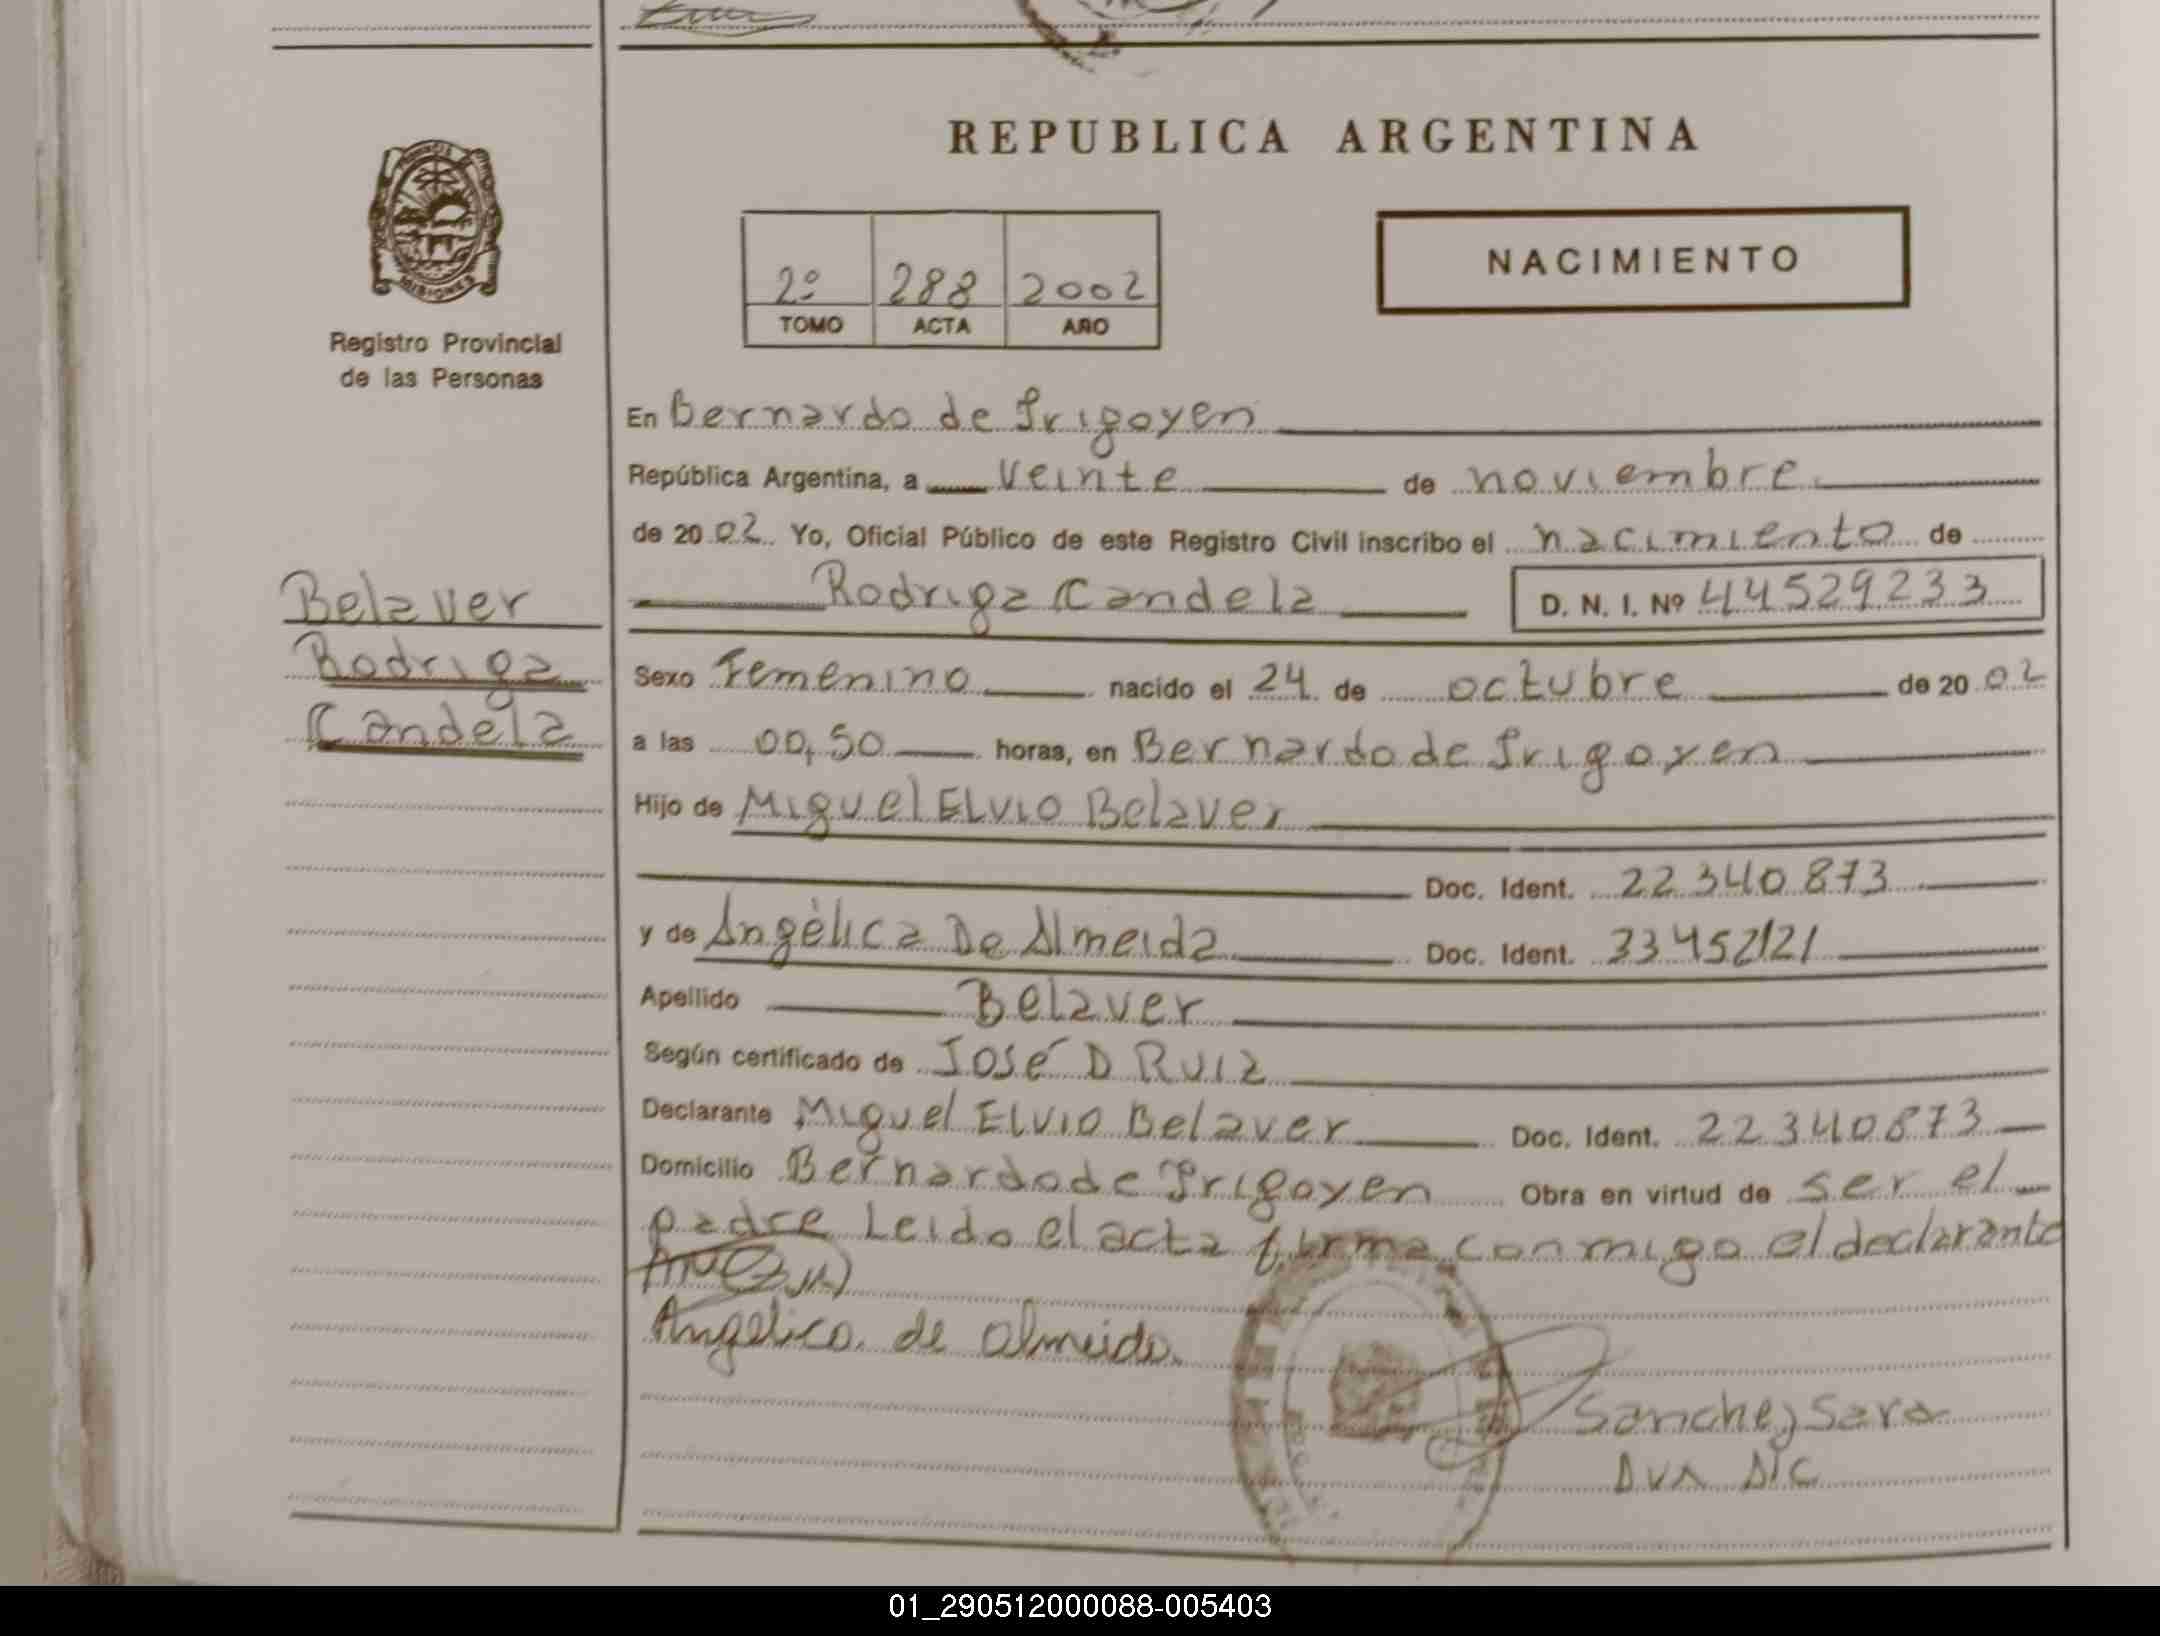 REPUBLICA ARGENTINA
NACIMIENTO
2º 288 2002
TOMO ACTA AÑO
PROVINCIA
MISIONES
Registro Provincial
de las Personas
Belaver
Rodriga
Candela
En Bernardo de Irigoyen
República Argentina, a veinte de noviembre
de 2002 Yo, Oficial Público de este Registro Civil inscribo el nacimiento de
Rodriga Candela D. N. I. Nº 44529233
Sexo Femenino nacido el 24 de octubre de 2002
a las 00,50 horas, en Bernardo de Irigoyen
Hijo de Miguel Elvio Belaver
Doc. Ident. 22340873
y de Angélica De Almeida Doc. Ident. 33452121
Apellido Belaver
Según certificado de José D Ruiz
Declarante Miguel Elvio Belaver Doc. Ident. 22340873
Domicilio Bernardo de Irigoyen Obra en virtud de ser el
padre Leido el acta firma conmigo el declarante
Angelica de Almeida
Sanchez Sara
01_290512000088-005403